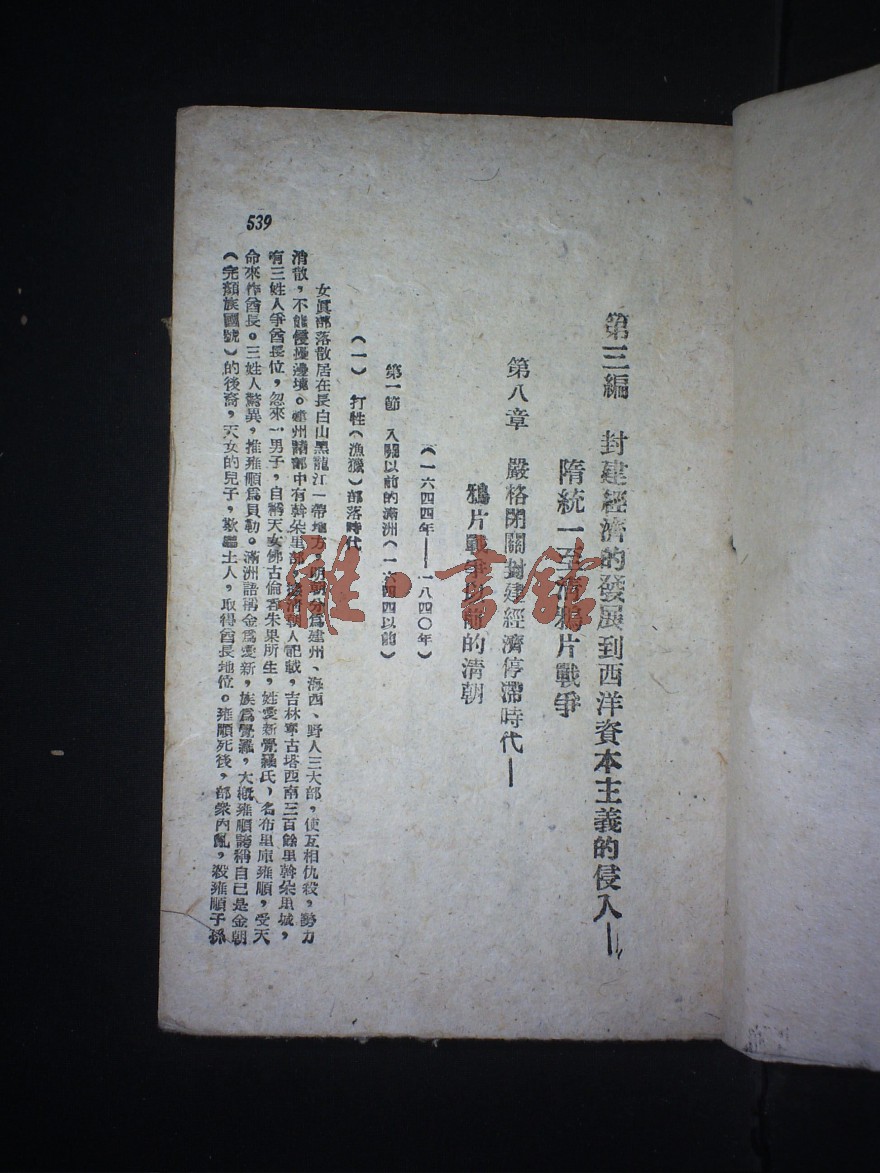 第三編　封建經濟的發展到西洋資本主義的侵入——
隋統一至清鴉片戰爭
第八章　嚴格閉關封建經濟停滯時代——
鴉片戰爭以前的清朝
（一六四四年——一八四〇年）
第一節　入關以前的滿洲（一六四四以前）
（一）　打牲（漁獵）部落時代
女眞部落散居在長白山黑龍江一帶地方，明朝分爲建州、海西、野人三大部，使互相仇殺，勢力
消散，不能侵擾邊境。建州諸部中有斡朵里部，據淸朝人記載，吉林寧古塔西南三百餘里斡朵里城，
有三姓人爭酋長位，忽來一男子，自稱天女佛古倫吞朱果所生，姓愛新覺羅氏，名布里庫雍順，受天
命來作酋長。三姓人驚異，推雍順爲貝勒。滿洲語稱金爲愛新，族爲覺羅，大槪雍順誇稱自已是金朝
（完顏族國號）的後裔，天女的兒子，欺騙土人，取得酋長地位。雍順死後，部衆內亂，殺雍順子孫
539
雅·書館